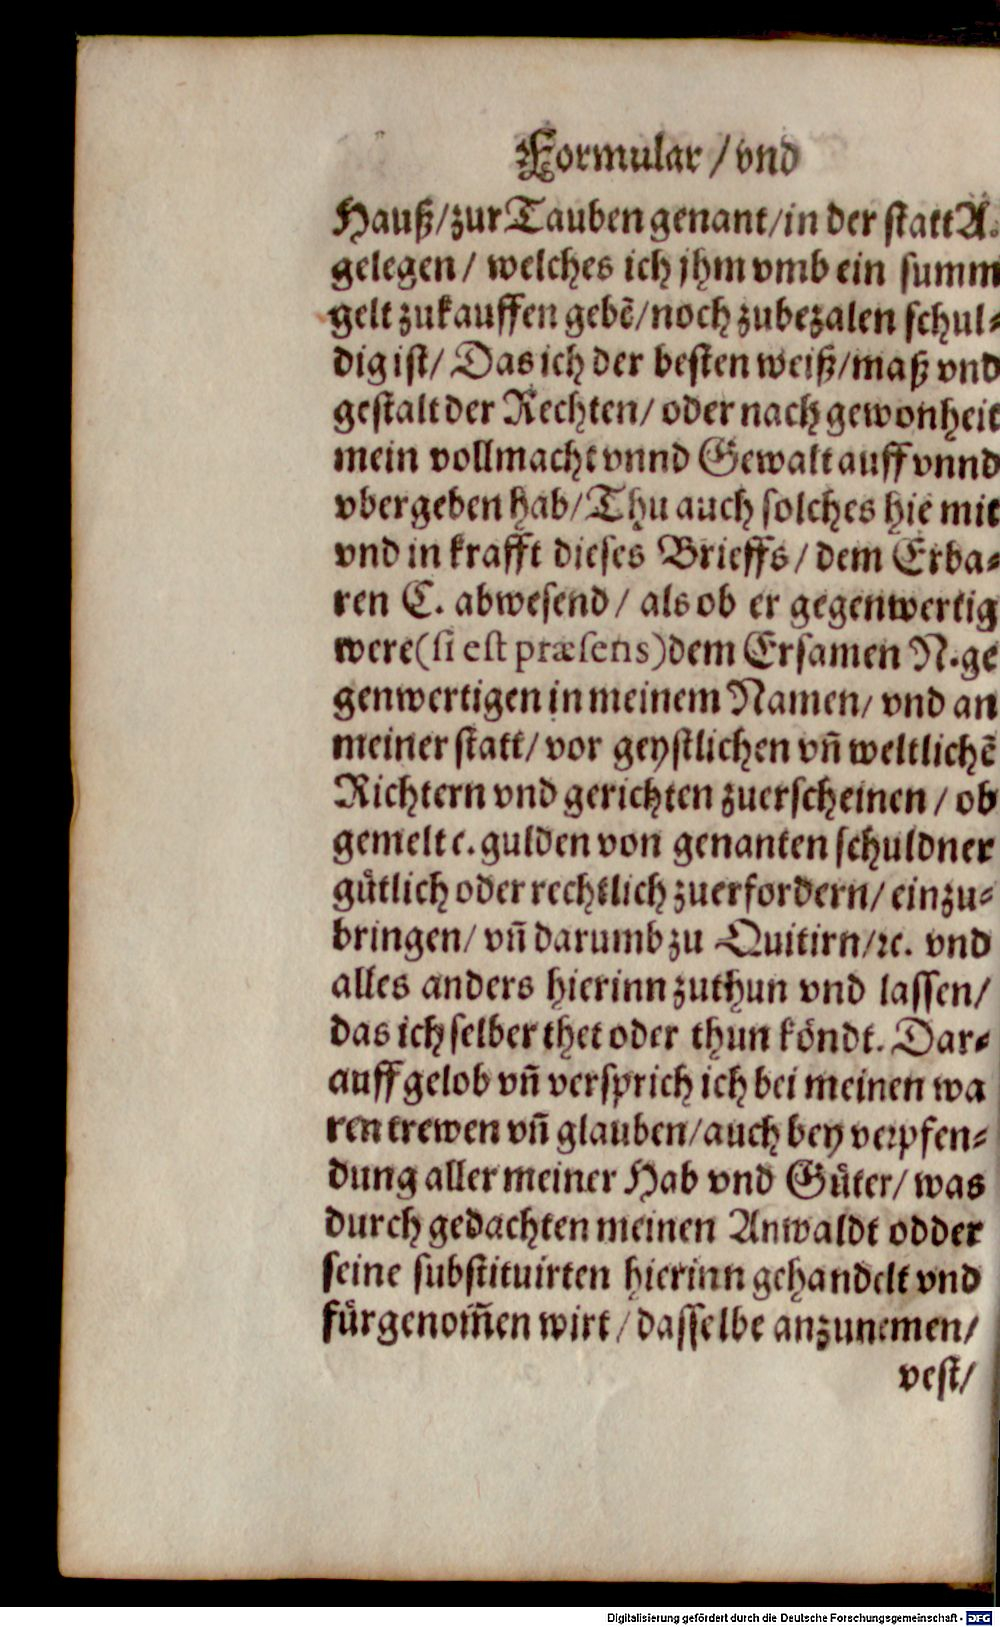 Formular / vnd
Hauß / zur Tauben genant / in der statt A.
gelegen / welches ich jhm vmb ein summ
gelt zukauffen gebē / noch zubezalen schul⸗
dig ist / Das ich der besten weiß / maß vnd
gestalt der Rechten / oder nach gewonheit
mein vollmacht vnnd Gewalt auff vnnd
vbergeben hab / Thu auch solches hie mit
vnd in krafft dieses Brieffs / dem Erba⸗
ren C. abwesend / als ob er gegenwertig
were (si est præsens) dem Ersamen N. ge
genwertigen in meinem Namen / vnd an
meiner statt / vor geystlichen vñ weltlichē
Richtern vnd gerichten zuerscheinen / ob
gemelt c. gulden von genanten schuldner
gütlich oder rechtlich zuerfordern / einzu⸗
bringen / vñ darumb zu Quitirn / ꝛc. vnd
alles anders hierinn zuthun vnd lassen /
das ich selber thet oder thun köndt. Dar⸗
auff gelob vñ versprich ich bei meinen wa
ren trewen vñ glauben / auch bey verpfen⸗
dung aller meiner Hab vnd Güter / was
durch gedachten meinen Anwaldt odder
seine substituirten hierinn gehandelt vnd
fürgenom̃en wirt / dasselbe anzunemen /
vest /
Digitalisierung gefördert durch die Deutsche Forschungsgemeinschaft - DFG